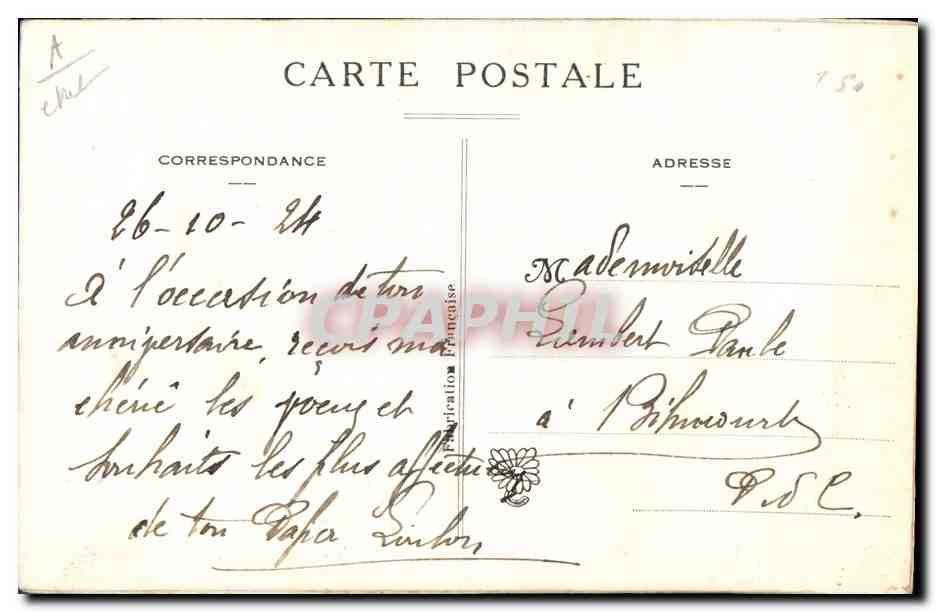 A
CARTE POSTALE
50
CORRESPONDANCE
ADRESSE
26-10-24
A l'occasion de ton
anniversaire, reçois ma
chérie les voeux et
souhaits les plus affectueux
de ton Papa Loulou
Fabrication Française
Mademoiselle
Paule
à Bihucourt
P. d C.
CPAPHIL